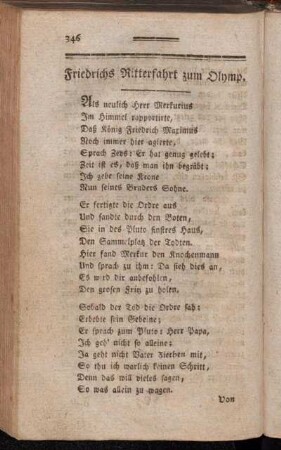 346
Friedrichs Ritterfahrt zum Olymp.
Als neulich Herr Merkurius
Im Himmel rapportirte,
Daß König Friedrich Maximus
Noch immer hier agierte,
Sprach Zevs: Er hat genug gelebt;
Zeit ist es, daß man ihn begräbt;
Ich gebe seine Krone
Nun seines Bruders Sohne.
Er fertigte die Ordre aus
Und sandte durch den Boten,
Sie in des Pluto finstres Haus,
Den Sammelplatz der Todten.
Hier fand Merkur den Knochenmann
Und sprach zu ihm: Da sieh dies an,
Es wird dir anbefohlen,
Den großen Fritz zu holen.
Sobald der Tod die Ordre sah:
Erbebte sein Gebeine;
Er sprach zum Pluto: Herr Papa,
Ich geh' nicht so alleine;
Ja geht nicht Vater Ziethen mit,
So thu ich warlich keinen Schritt,
Denn das will vieles sagen,
So was allein zu wagen.
Von